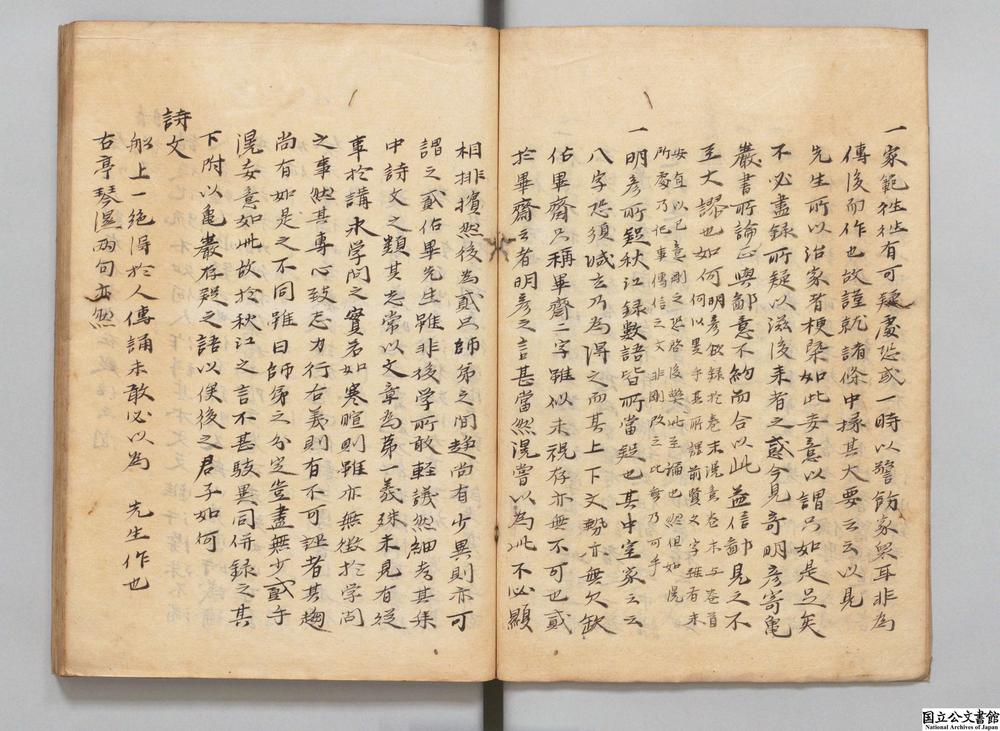 一家範往往有可疑處恐或一時以警飭家衆耳非爲
傳後而作也故謹就諸條中採其大要云云以見
先生所以治家者梗槩如此妄意以謂只如是足矣
不必盡錄所疑以滋後來者之惑今見寄明彦寄龜
巖書所論正與鄙意不約而合以此益信鄙見之不
至大謬也如何明彦欲錄於卷末滉意卷末与卷首
何以異乎其所謂前賢文字雖有未
安豈以己意刪之恐啓後弊此至論也然但如滉
所處乃記事傳信之文非刪改三比哥乃可乎
一明彦所疑秋江錄數語皆所當疑也其中室家云云
八字恐須減去乃爲得之而其上下文勢亦無欠缺
佔畢齋只稱畢齋二字雖似未穩存亦無不可也貳
於畢齋云者明彦之言甚當然滉嘗以爲此不必顯
相排擯然後爲貳只師弟之間趨尚有少異則亦可
謂之貳佔畢先生雖非後學所敢輕議然細考其集
中詩文之類其志常以文章爲第一義殊未見有從
事於講求學問之實者如寒暄則雖亦無徵於学問
之事然其專心致志力行古義則有不可誣者其趨
尚有如是之不同雖曰師弟之分定豈盡無少貳乎
滉妄意如此故於秋江之言不甚駭異同併錄之其
下附以龜巖存疑之語以俟後之君子如何
詩文
船上一絶得於人傳誦未敢必以爲 先生作也
古亭琴濕兩句亦然
国立公文書館
National Archives of Japan